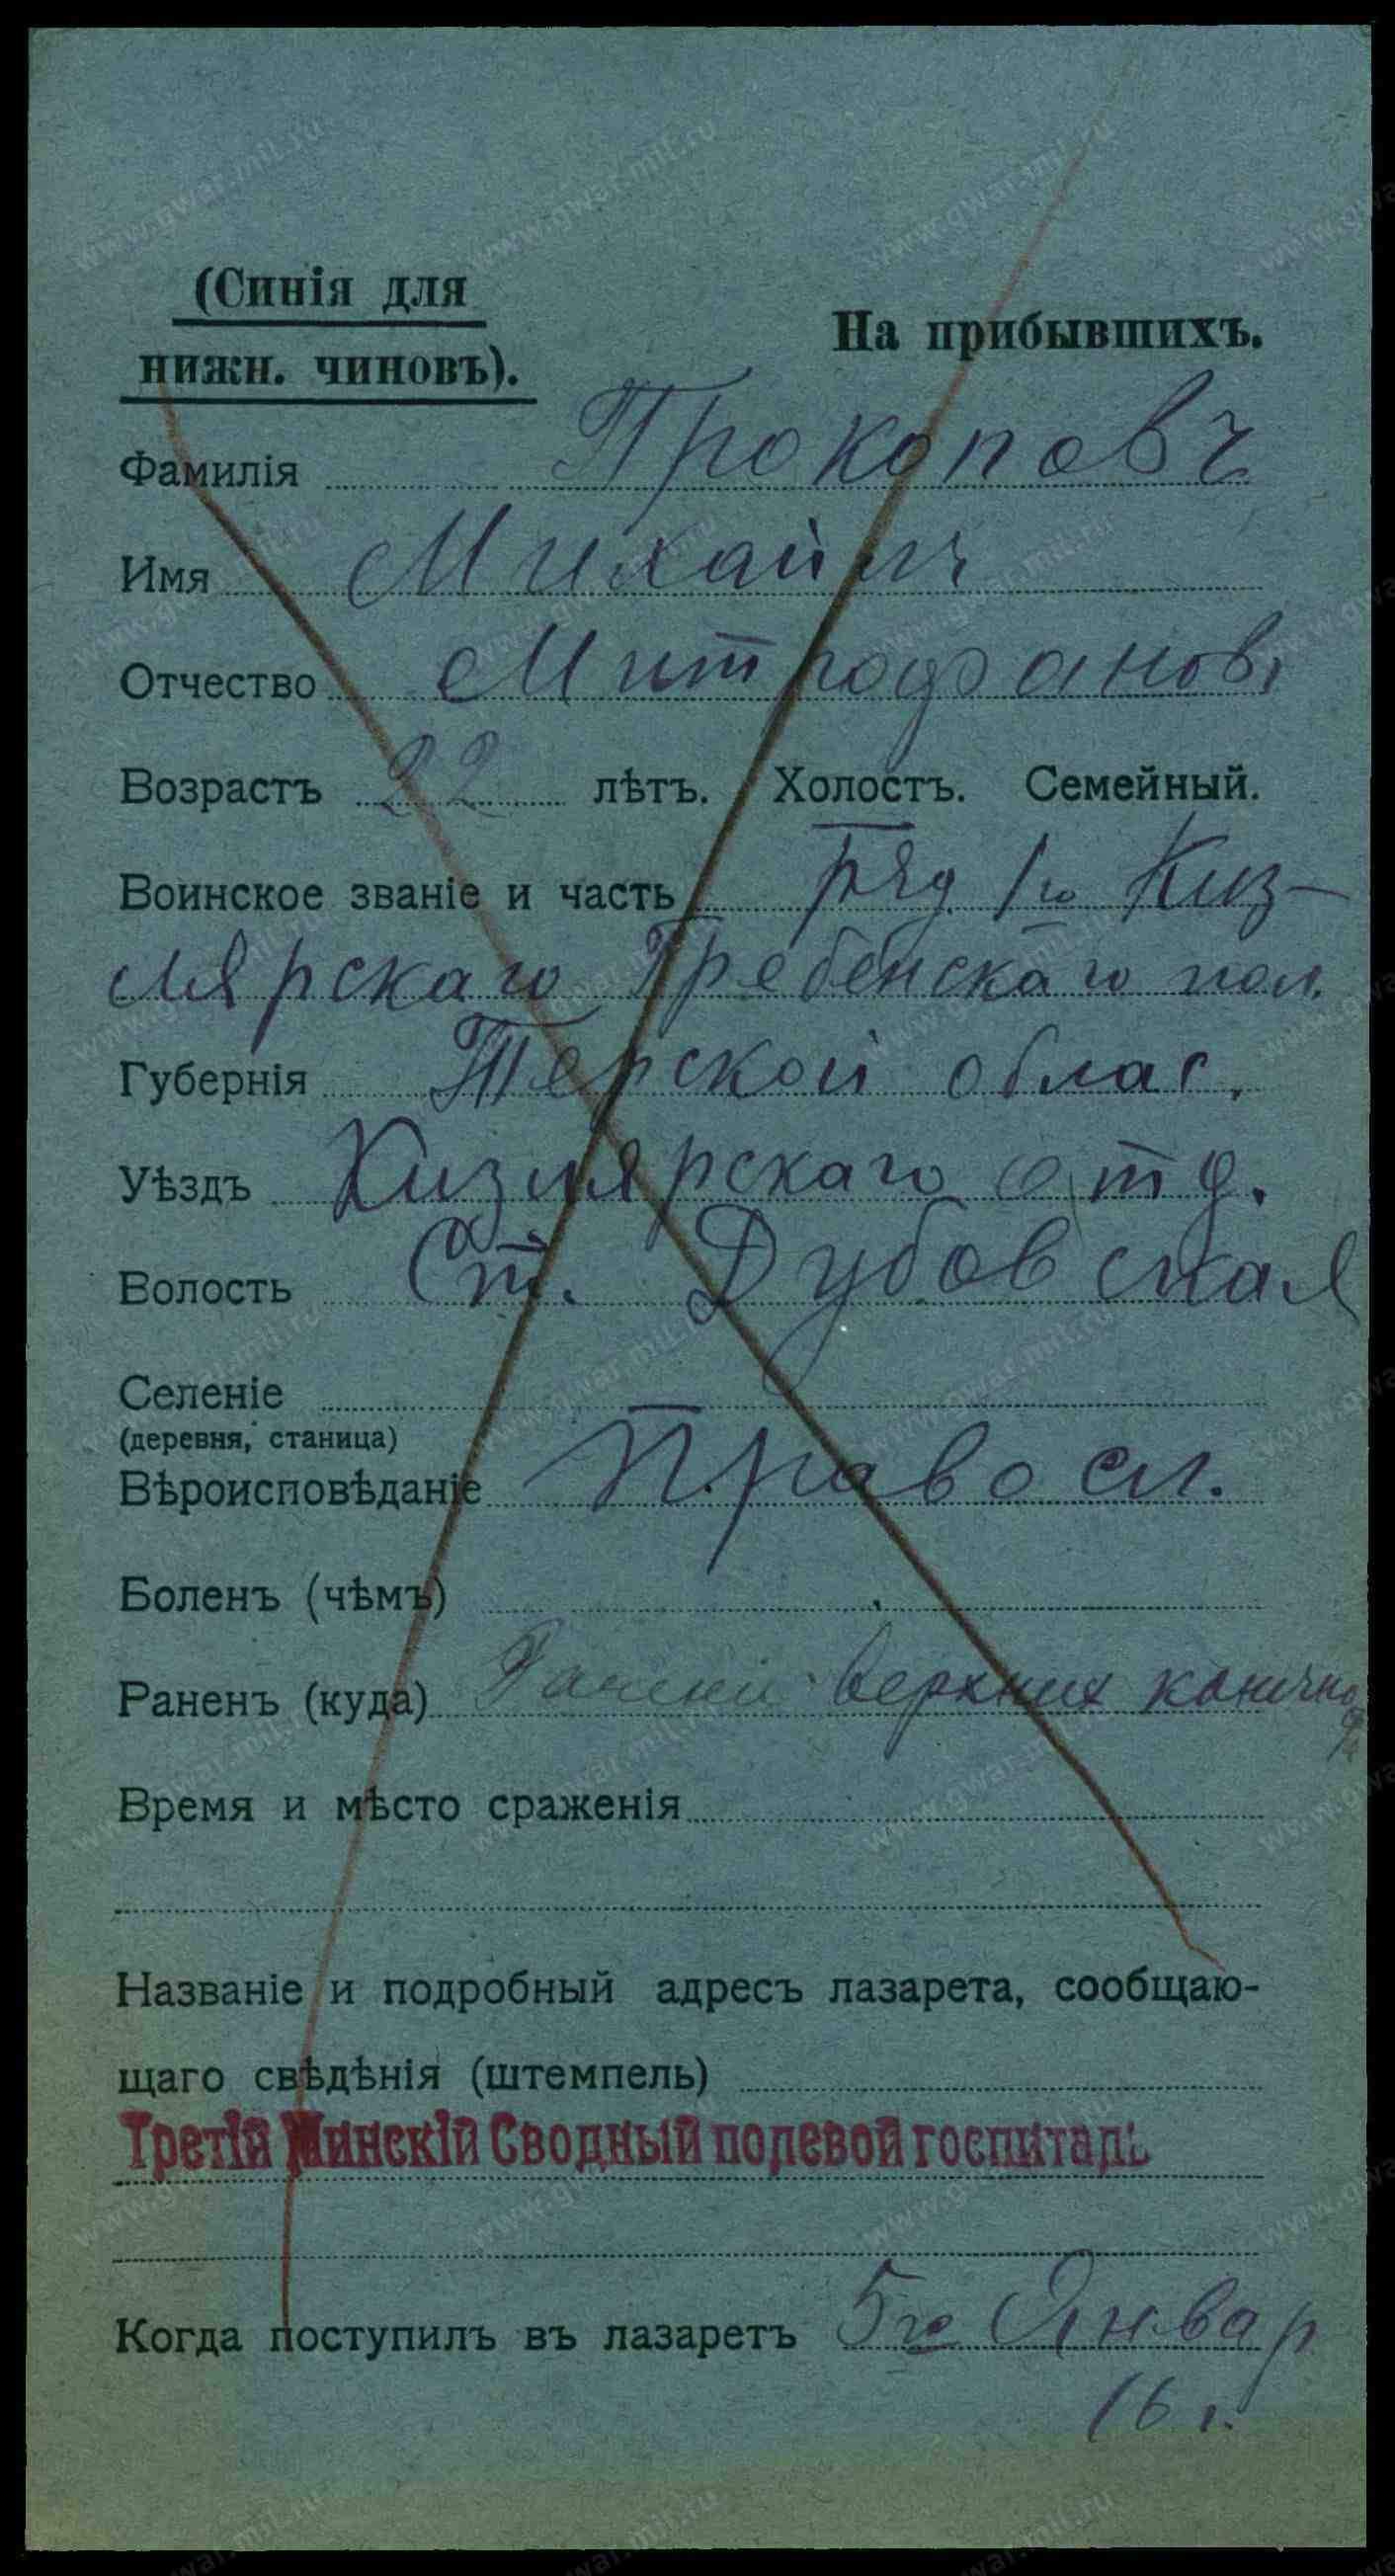 (Синія для
нижн. чиновъ).
На прибывшихъ.
Фамилія Прокоповъ
Имя Михаилъ
Отчество Митрофанов
Возрастъ 22 лѣтъ. Холостъ. Семейный.
Воинское званіе и часть Ряд. 1го Киз-
лярскаго Гребенскаго пол.
Губернія Терской облас.
Уѣздъ Кизлярскаго отд.
Волость Ст. Дубовская
Селеніе
(деревня, станица)
Вѣроисповѣданіе Правосл.
Боленъ (чѣмъ)
Раненъ (куда) верхних
Время и мѣсто сраженія
Названіе и подробный адресъ лазарета, сообщаю-
щаго свѣдѣнія (штемпель)
Третій Минскій Сводный полевой госпиталь
Когда поступилъ въ лазаретъ 5го Январ
16 г.
www.gwar.mil.ru